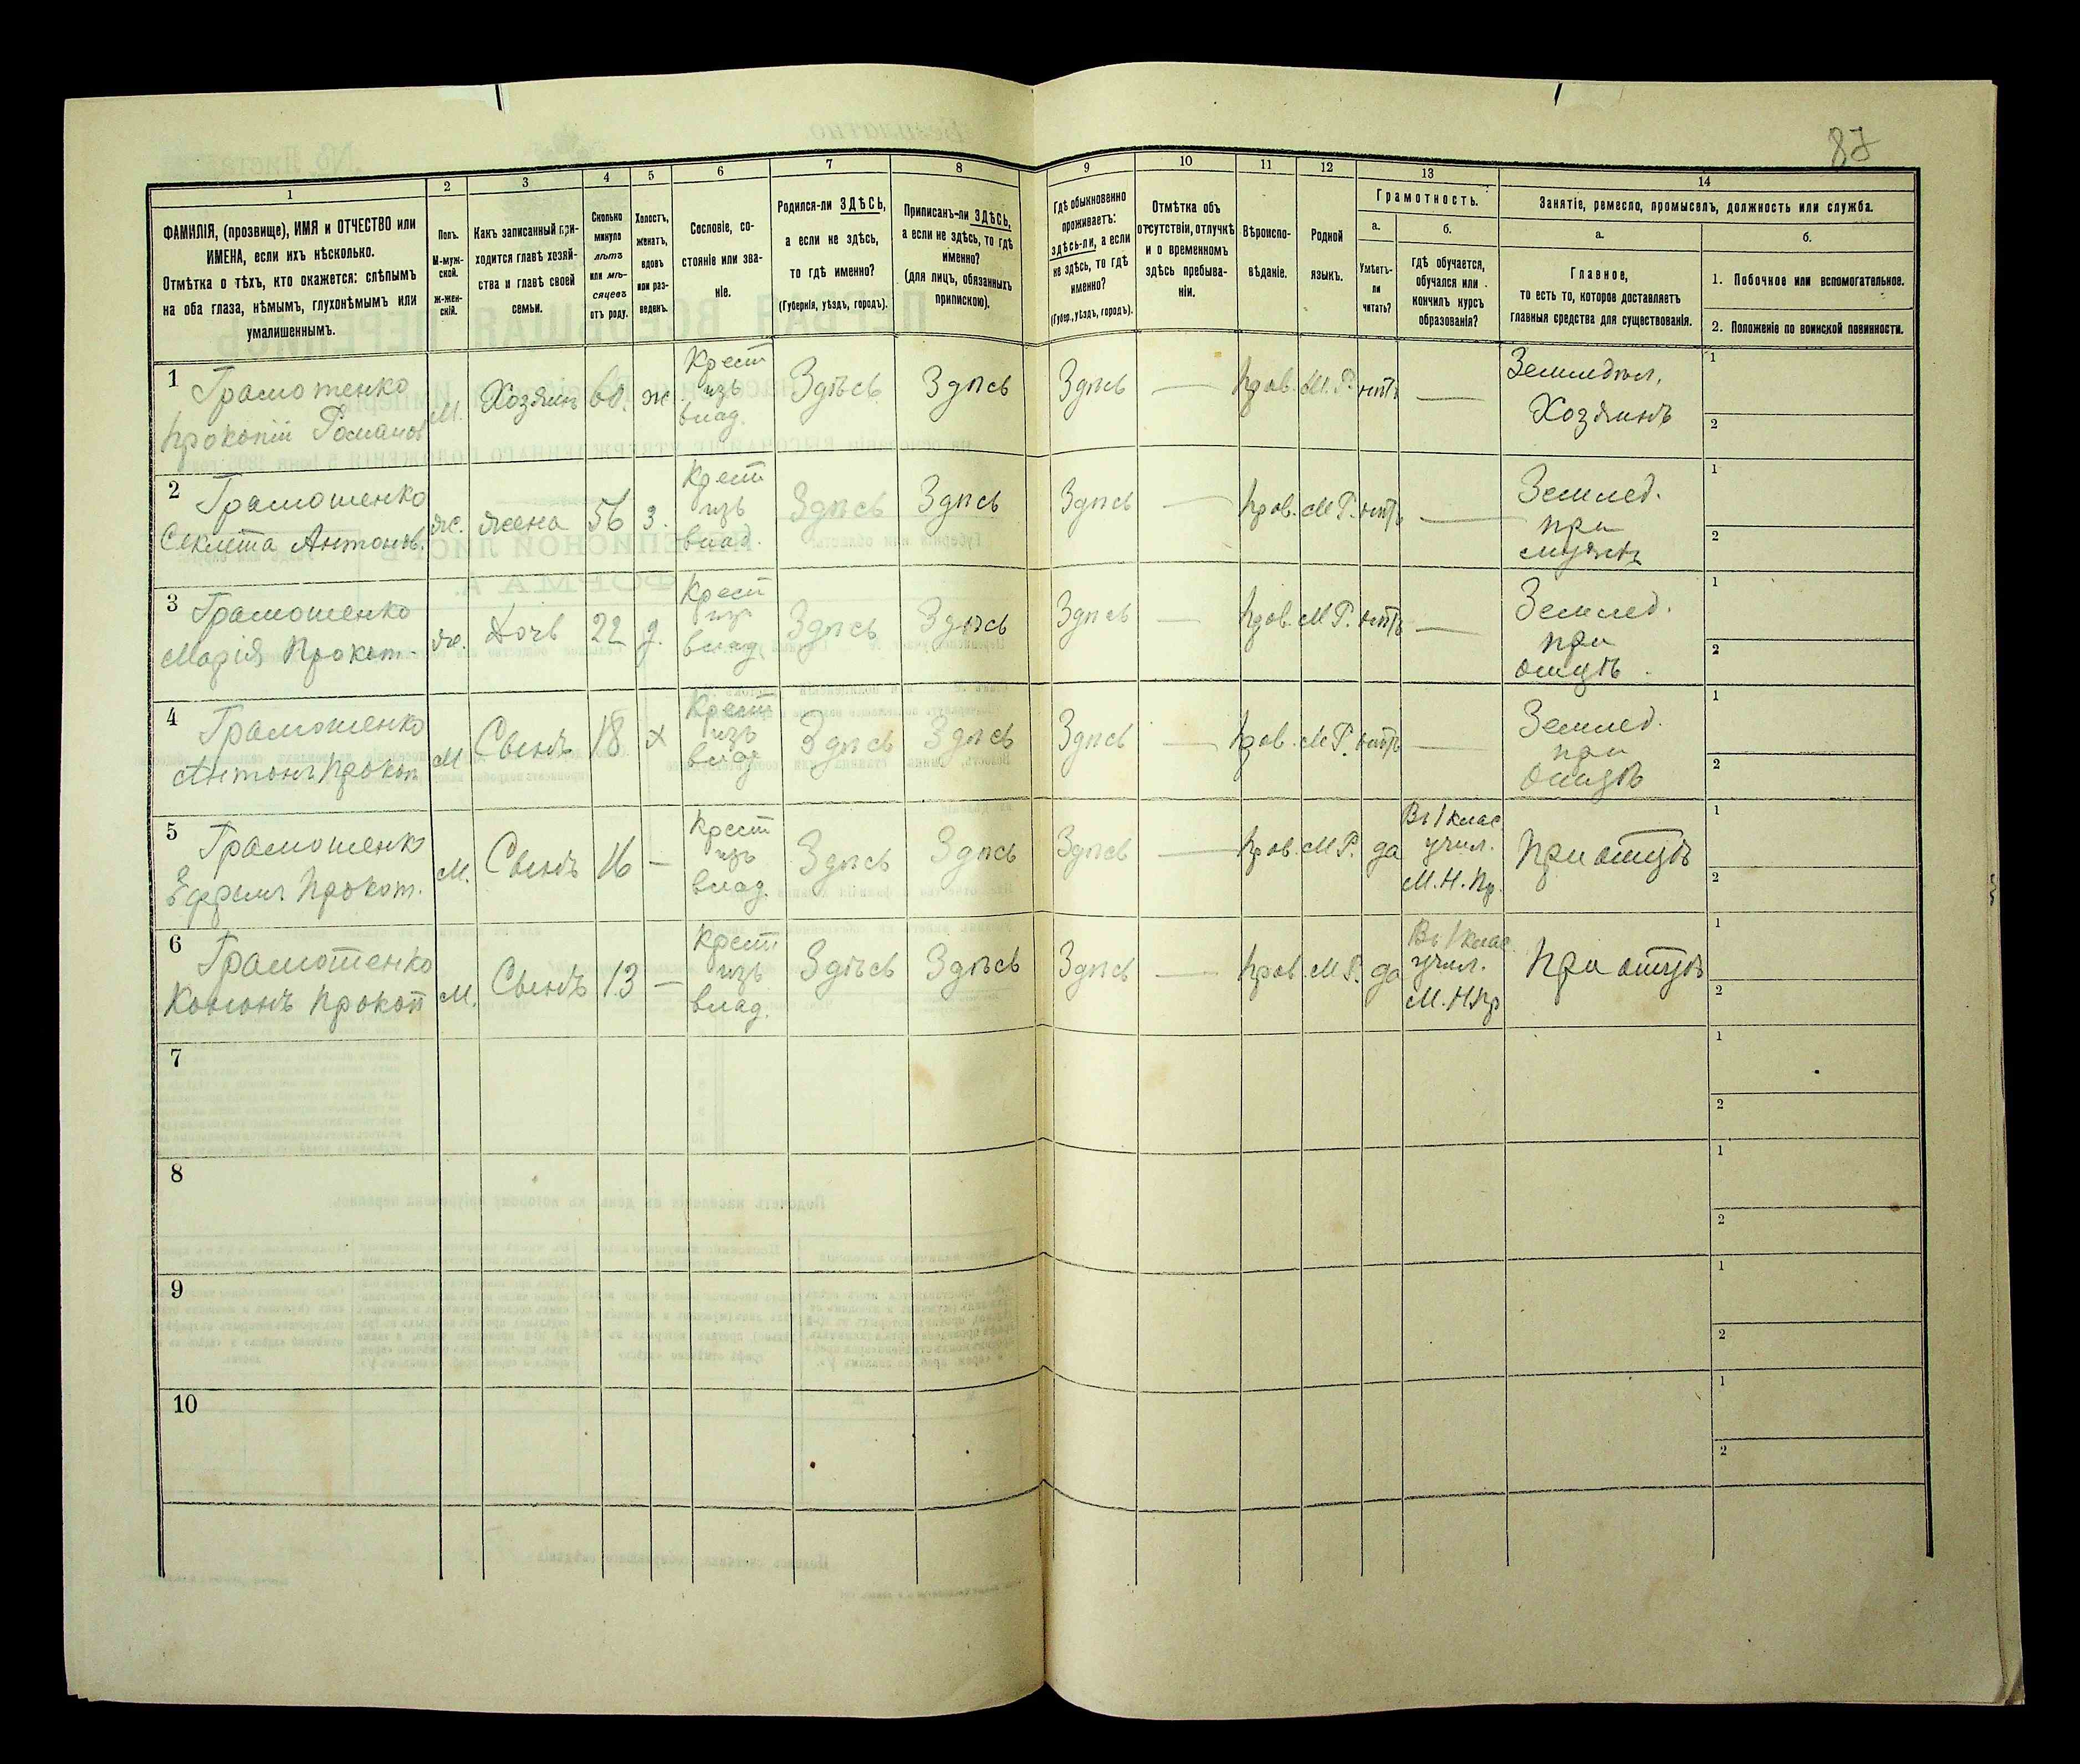 87
1
2
3
4
5
6
7
8
9
10
11
12
13
14
ФАМИЛІЯ, (прозвище), ИМЯ и ОТЧЕСТВО или
ИМЕНА, если ихъ нѣсколько.
Отмѣтка о тѣхъ, кто окажется: слѣпымъ
на оба глаза, нѣмымъ, глухонѣмымъ или
умалишеннымъ.
Полъ.
М-муж-
ской.
Ж-жен-
скій.
Какъ записанный при-
ходится главѣ хозяй-
ства и главѣ своей
семьи.
Сколько
минуло
лѣтъ
или мѣ-
сяцевъ
отъ роду.
Холостъ,
женатъ,
вдовъ
или раз-
веденъ.
Сословіе, со-
стояніе или зва-
ніе.
Родился-ли ЗДѢСЬ,
а если не здѣсь,
то гдѣ именно?
(Губернія, уѣздъ, городъ).
Приписанъ-ли ЗДѢСЬ,
а если не здѣсь, то гдѣ
именно?
(для лицъ, обязанныхъ
припискою).
Гдѣ обыкновенно
проживаетъ:
здѣсь-ли, а если
не здѣсь, то гдѣ
именно?
(Губер., уѣздъ, городъ).
Отмѣтка объ
отсутствіи, отлучкѣ
и о временномъ
здѣсь пребыва-
ніи.
Вѣроиспо-
вѣданіе.
Родной
языкъ.
Грамотность.
а.
Умѣетъ-
ли
читать?
б.
гдѣ обучается,
обучался или
кончилъ курсъ
образованія?
Занятіе, ремесло, промыселъ, должность или служба.
а.
Главное,
то есть то, которое доставляетъ
главныя средства для существованія.
б.
1. Побочное или вспомогательное.
2. Положеніе по воинской повинности.
1 Грамотенко
Прокопій Романов
М. Хозяинъ 60. ж
Крест
изъ
влад.
Здѣсь Здѣсь Здѣсь — Прав. М.Р. нѣтъ —
Земледѣл.
Хозяинъ
1
2
2 Грамотенко
Секлета Антонов.
ж. жена 56 з.
Крест
изъ
влад.
Здѣсь Здѣсь Здѣсь — Прав. М.Р. нѣтъ —
Землед.
при
мужѣ
1
2
3 Грамотенко
Марія Прокоп.
ж. Дочь 22 д.
Крест
изъ
влад.
Здѣсь Здѣсь Здѣсь — Прав. М.Р. нѣтъ —
Землед.
при
отцѣ
1
2
4 Грамотенко
Антонъ Прокоп
М Сынъ 18 х
Крест
изъ
влад
Здѣсь Здѣсь Здѣсь — Прав. М.Р. нѣтъ —
Землед.
при
отцѣ
1
2
5 Грамотенко
Ефремъ Прокоп.
М. Сынъ 16 —
Крест
изъ
влад.
Здѣсь Здѣсь Здѣсь — Прав. М.Р. да
Въ 1 клас
учил.
М.Н.Пр.
При отцѣ
1
2
6 Грамотенко
Кононъ Прокоп
М. Сынъ 13 —
Крест
изъ
влад.
Здѣсь Здѣсь Здѣсь — Прав. М.Р. да
Въ 1 клас.
учил.
М.Н.Пр
При отцѣ
1
2
7
1
2
8
1
2
9
1
2
10
1
2